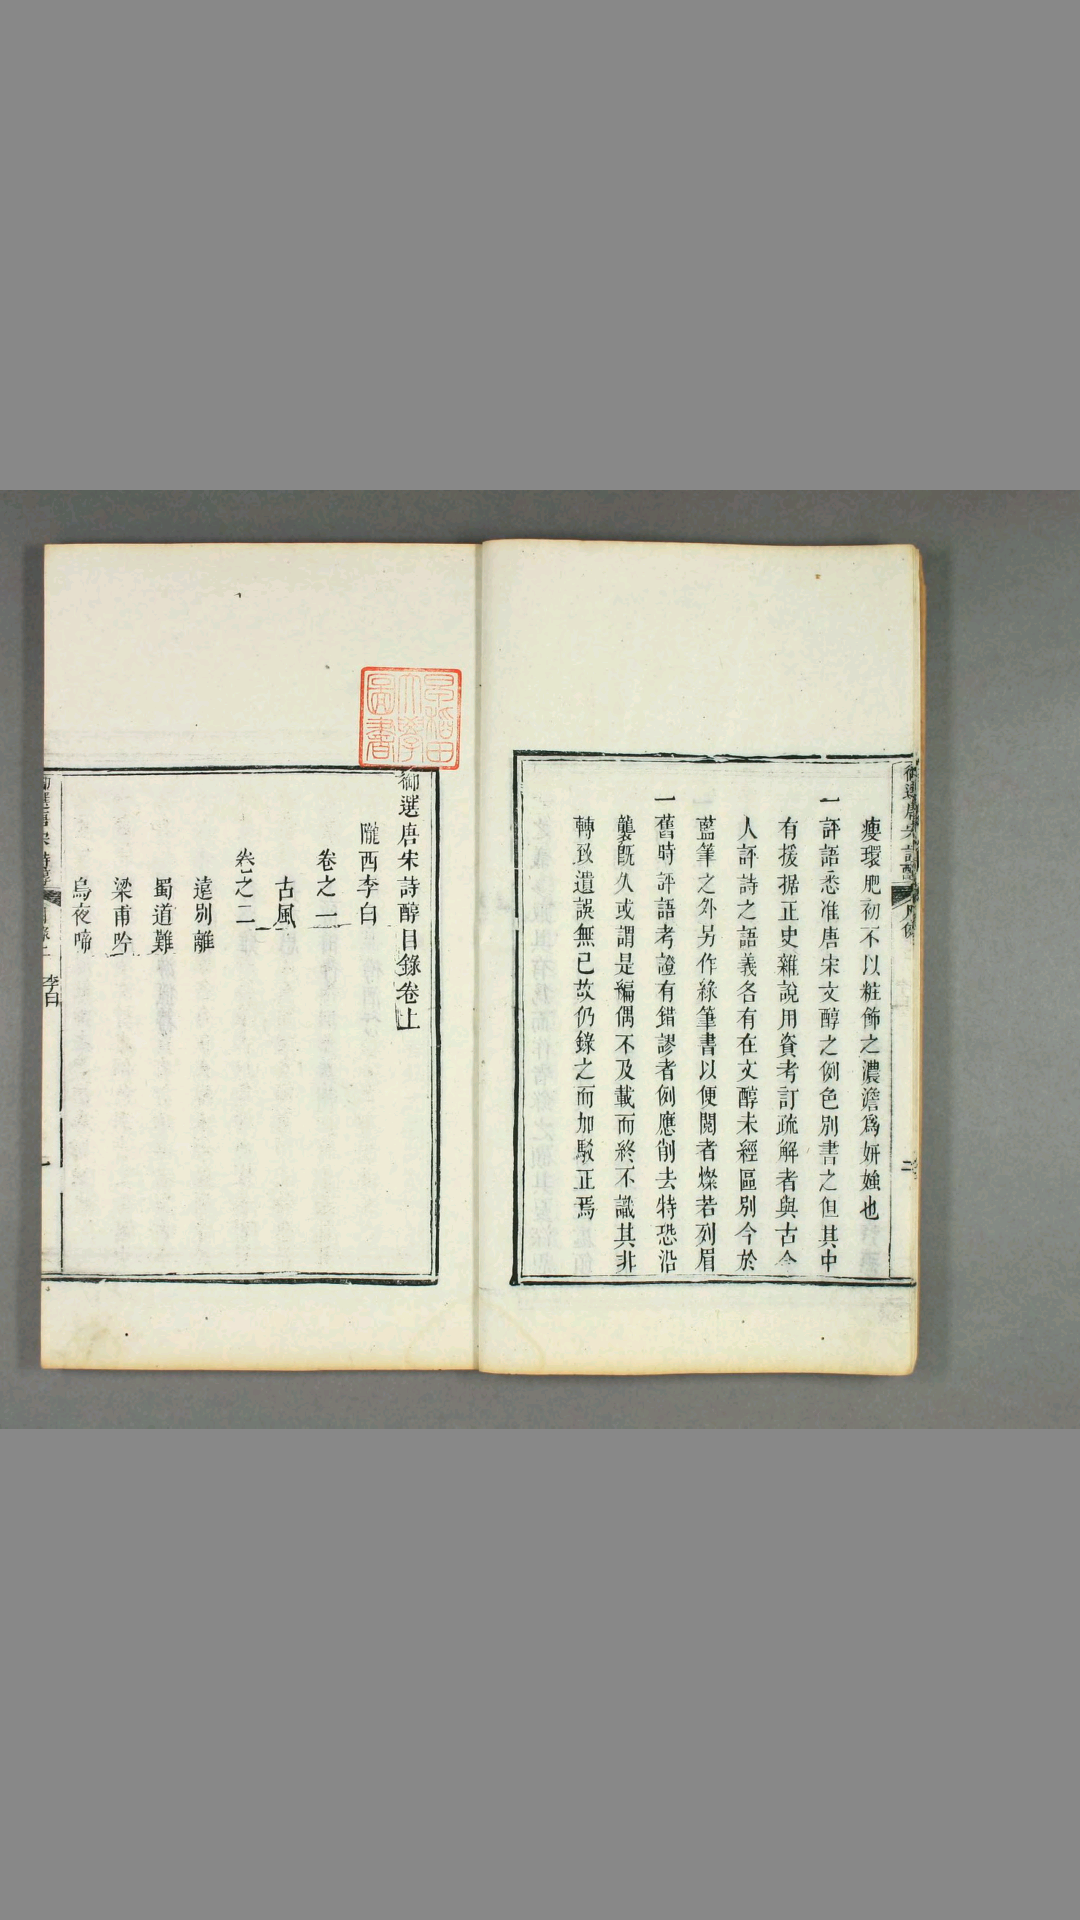 瘦環肥初不以粧飾之濃澹爲妍媸也
一評語悉准唐宋文醇之例色別書之但其中
有援据正史雜說用資考訂疏解者與古今
人評詩之語義各有在文醇未經區別今於
藍筆之外另作綠筆書以便閱者燦若列眉
一舊時評語考證有錯謬者例應削去特恐沿
襲既久或謂是編偶不及載而終不識其非
轉致遺誤無已故仍錄之而加駁正焉
早稻田
大學
圖書
御選唐宋詩醇目錄卷上
隴西李白
卷之一
古風
卷之二
遠別離
蜀道難
梁甫吟
烏夜啼
李白